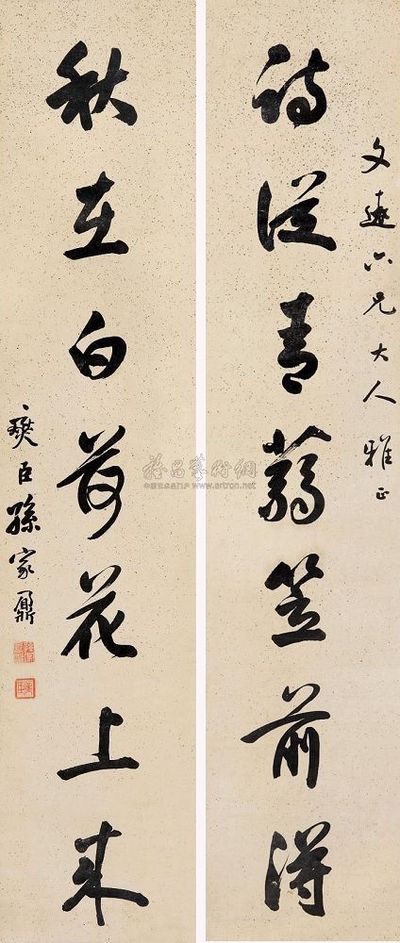 文遠六兄大人雅正
詩從青蒻笠前得
秋在白荷花上来
燮臣孫家鼐
雅昌藝術網
www.artron.net